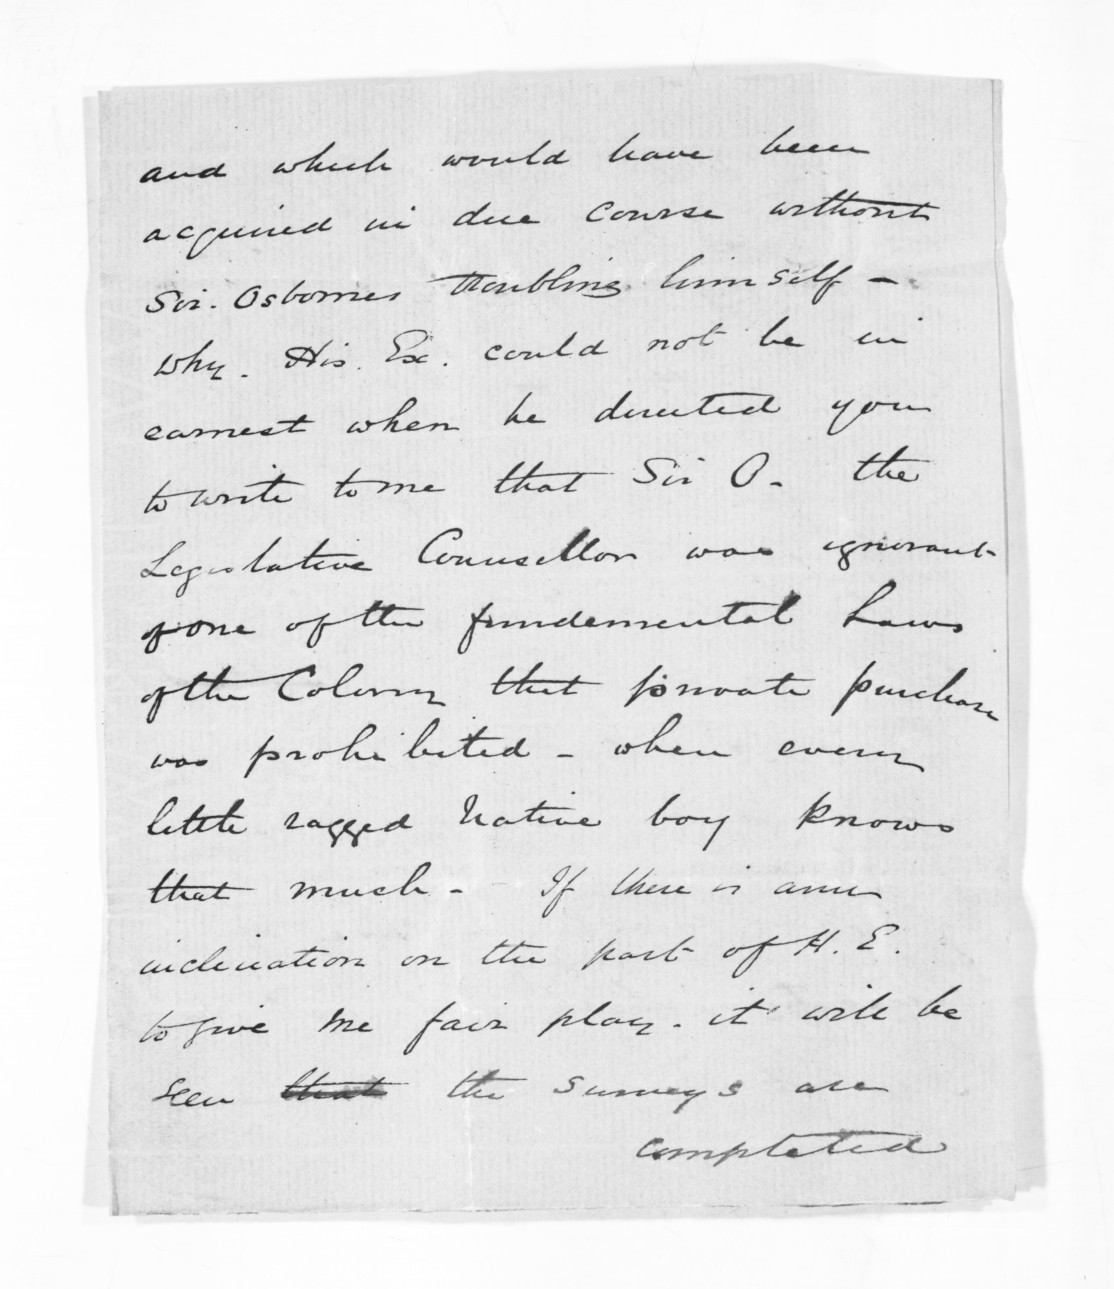 and which would have been
acquired in due course without
Sir. Osbornes troubling himself -
why. His. Ex. could not be in
earnest when he directed you
to write to me that Sir O. the
Legislative Counsellor was ignorant
of one of the fundemental Laws
of the Colony that private purchase
was prohibited - when every
little ragged Native boy knows
that much - If there is any
inclination on the part of H. E.
to give me fair play. it will be
seen that the surveys are
completed